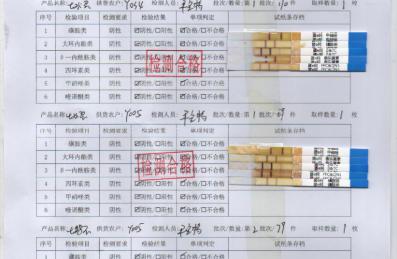 产品名称: 供货农户: Y054 检测人员: 批次/数量: 第1批次/ 件 取样数量: 1 枚
序号 检验项目 检测要求 检验结果 单项判定 试纸条存档
1 磺胺类 阴性 ☑阴性/□阳性 ☑合格/□不合格
2 大环内酯类 阴性 ☑阴性/□阳性 ☑合格/□不合格
3 β-内酰胺类 阴性 ☑阴性/□阳性 ☑合格/□不合格
4 四环素类 阴性 ☑阴性/□阳性 ☑合格/□不合格
5 甲硝唑类 阴性 ☑阴性/□阳性 ☑合格/□不合格
6 喹诺酮类 阴性 ☑阴性/□阳性 ☑合格/□不合格
检测合格
产品名称: 供货农户: Y005 检测人员: 批次/数量: 第1批次/ 件 取样数量: 1 枚
序号 检验项目 检测要求 检验结果 单项判定 试纸条存档
1 磺胺类 阴性 ☑阴性/□阳性 ☑合格/□不合格
2 大环内酯类 阴性 ☑阴性/□阳性 ☑合格/□不合格
3 β-内酰胺类 阴性 ☑阴性/□阳性 ☑合格/□不合格
4 四环素类 阴性 ☑阴性/□阳性 ☑合格/□不合格
5 甲硝唑类 阴性 ☑阴性/□阳性 ☑合格/□不合格
6 喹诺酮类 阴性 ☑阴性/□阳性 ☑合格/□不合格
检测合格
产品名称: 供货农户: Y005 检测人员: 批次/数量: 第2批次/79 件 取样数量: 1 枚
序号 检验项目 检测要求 检验结果 单项判定 试纸条存档
1 磺胺类 阴性 ☑阴性/□阳性 ☑合格/□不合格